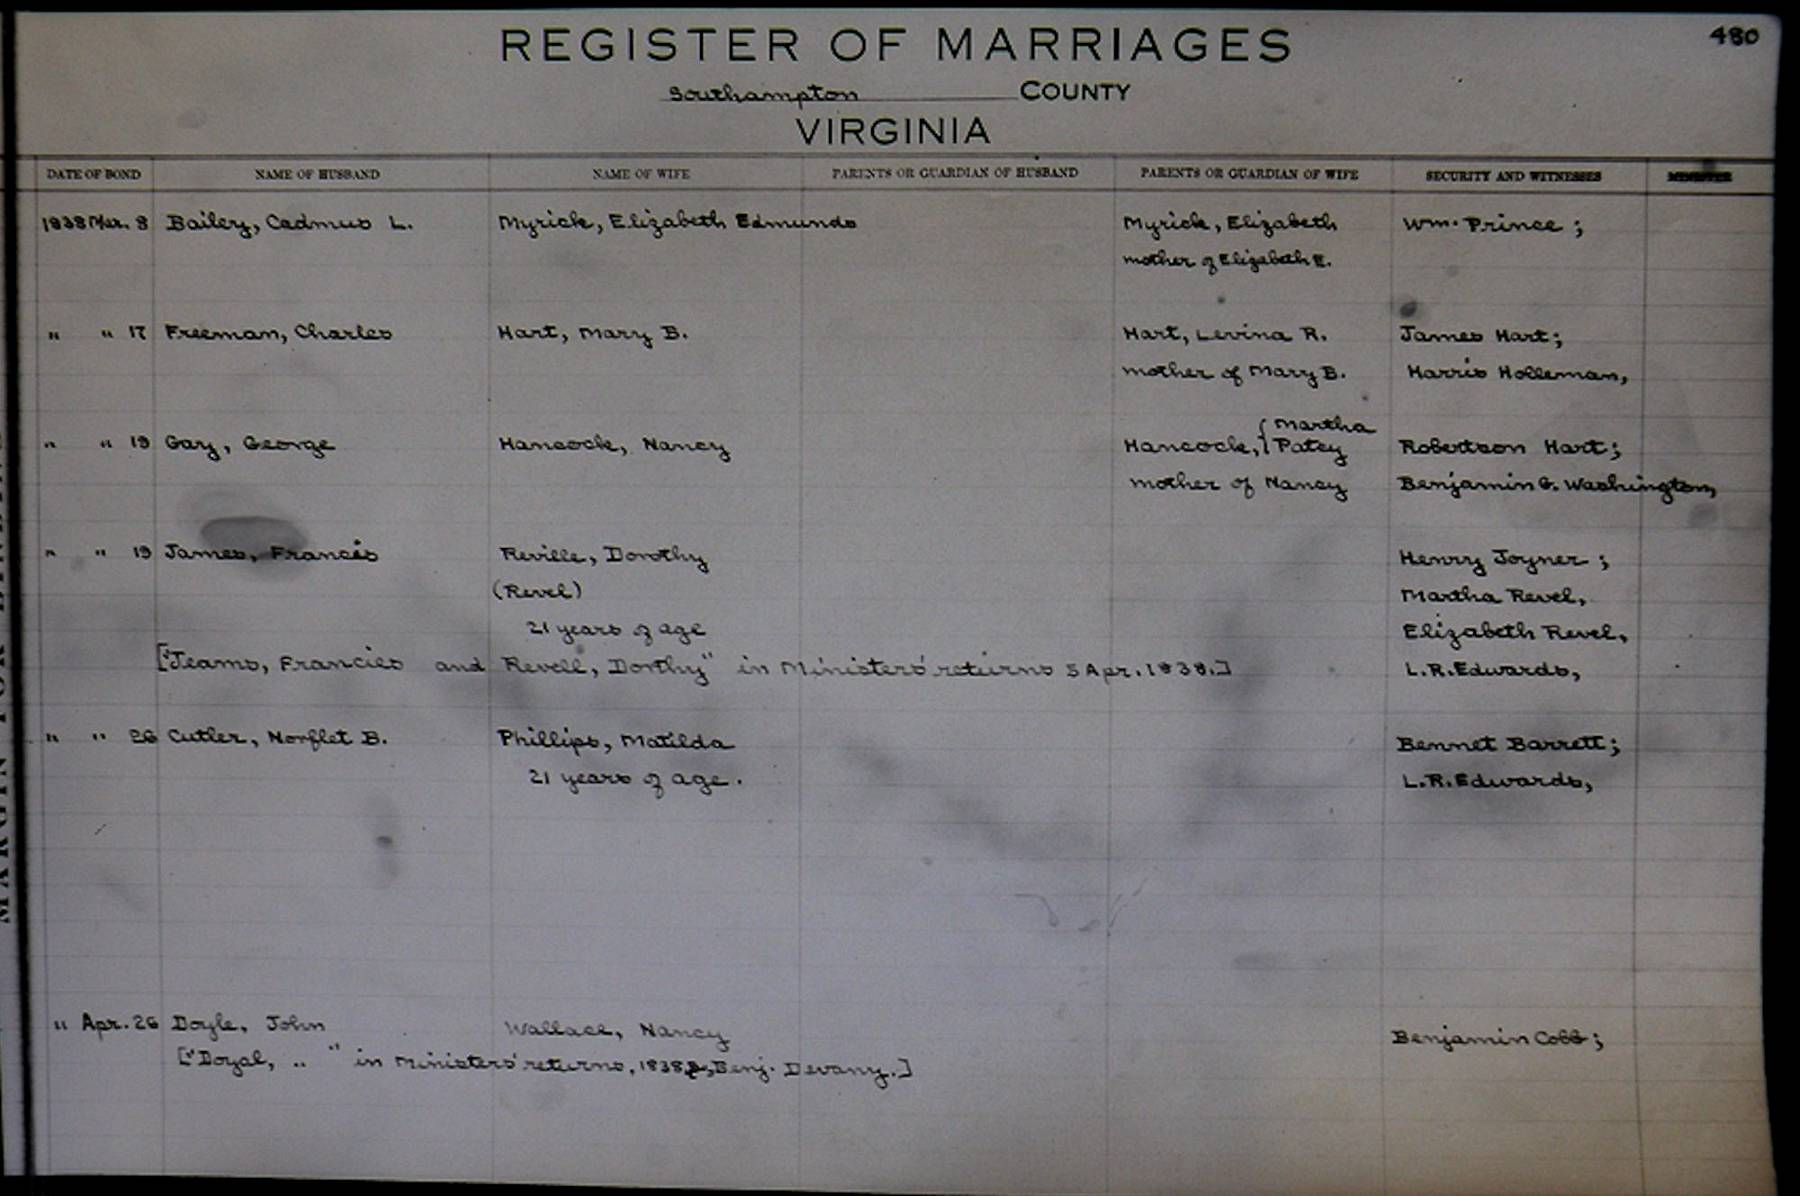 480
REGISTER OF MARRIAGES
Southampton COUNTY
VIRGINIA
DATE OF BOND NAME OF HUSBAND NAME OF WIFE PARENTS OR GUARDIAN OF HUSBAND PARENTS OR GUARDIAN OF WIFE SECURITY AND WITNESSES MINISTER
1838 Mar. 8 Bailey, Cadmus L. Myrick, Elizabeth Edmunds Myrick, Elizabeth Wm. Prince ;
mother of Elizabeth E.
" " 17 Freeman, Charles Hart, Mary B. Hart, Levina R. James Hart;
mother of Mary B. Harris Holleman,
{ Martha
" " 19 Gay, George Hancock, Nancy Hancock, { Patcy Robertson Hart;
mother of Nancy Benjamin G. Washington,
" " 19 James, Francis Reville, Dorothy Henry Joyner ;
(Revel) Martha Revel,
21 years of age Elizabeth Revel,
["Jeams, Francies and Revell, Dorthy" in Ministers' returns 5 Apr. 1838.] L.R. Edwards,
" " 26 Cutler, Norflet B. Phillips, Matilda Bennet Barrett;
21 years of age. L.R. Edwards,
" Apr. 26 Doyle, John Wallace, Nancy Benjamin Cobb ;
["Doyal, " " in Ministers' returns, 1838, Benj. Devany.]
MARGIN FOR BINDING